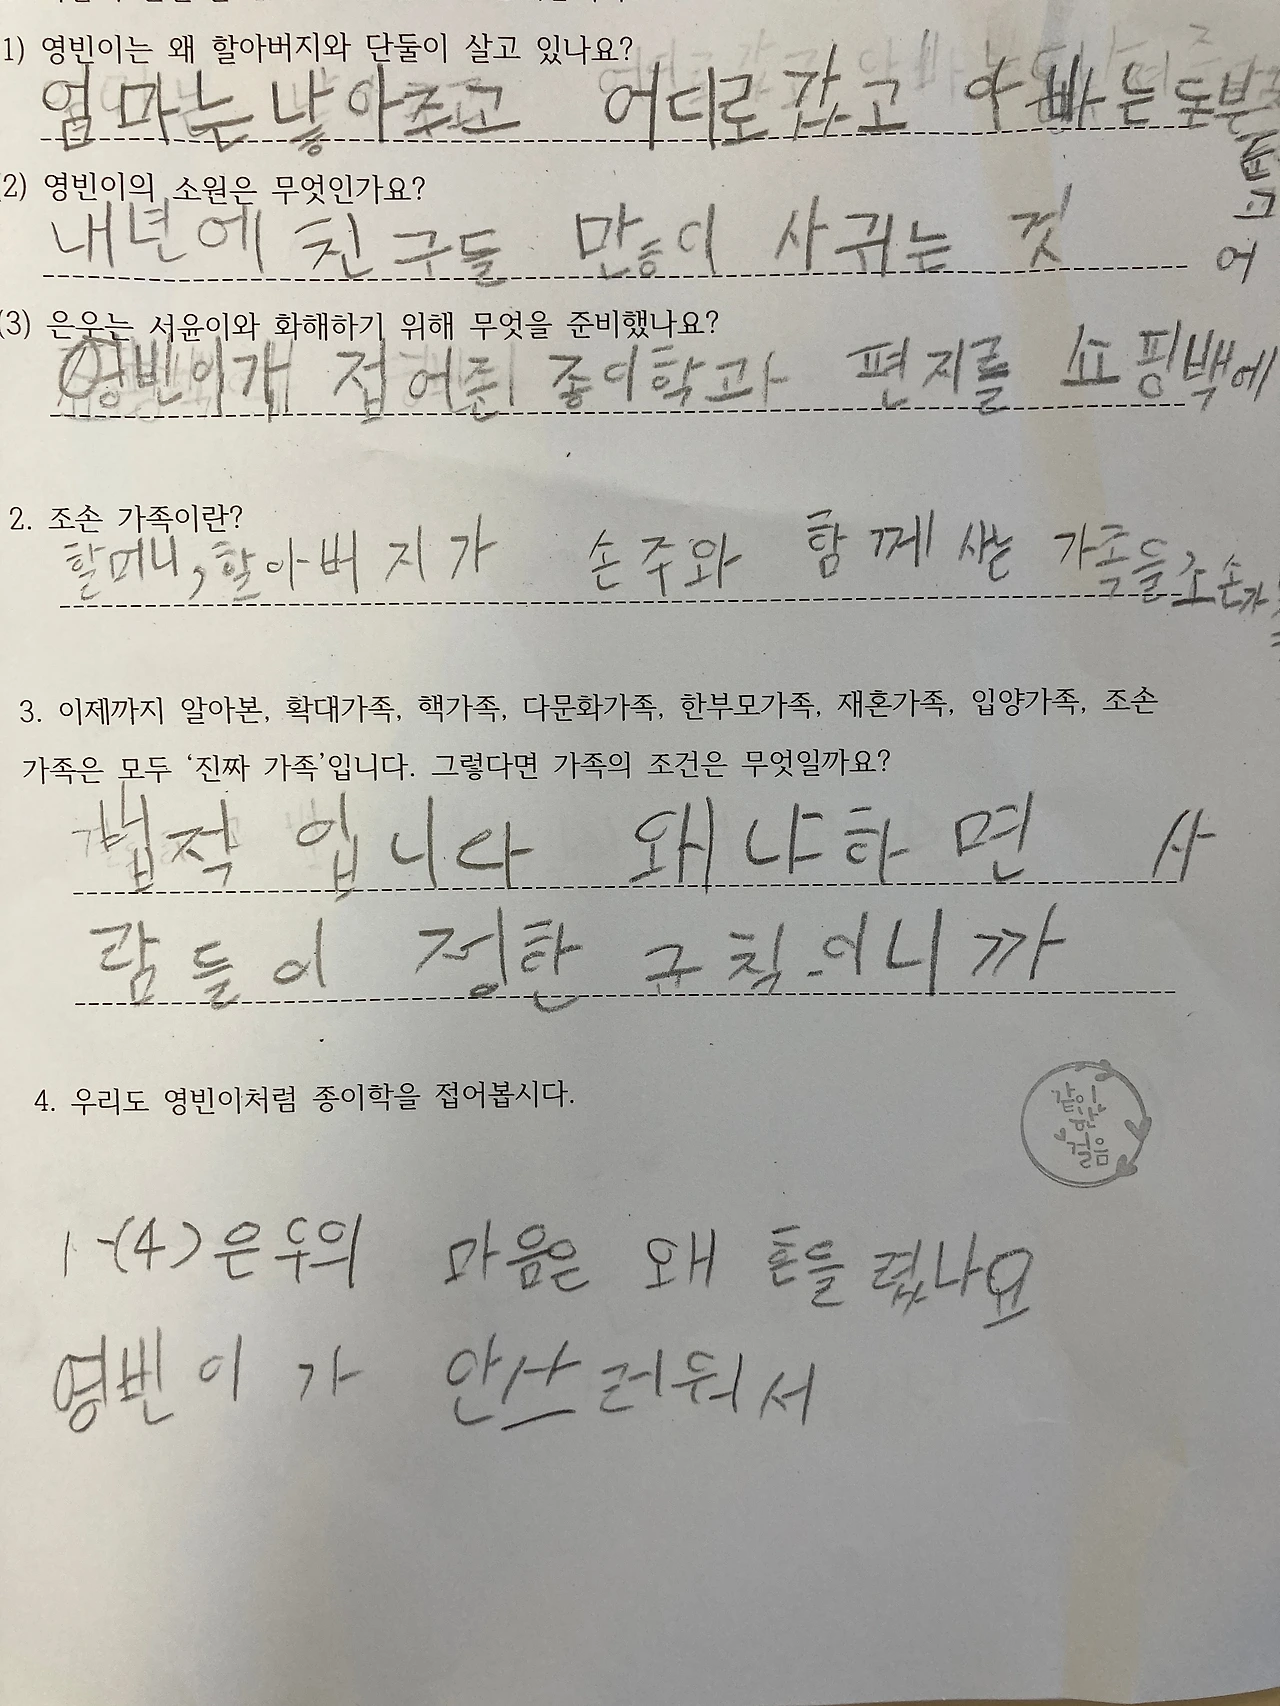 1) 영빈이는 왜 할아버지와 단둘이 살고 있나요?
엄마는 낳아주고 어디로 갔고 아빠는 돈
어
2) 영빈이의 소원은 무엇인가요?
내년에 친구들 많이 사귀는 것
(3) 은우는 서윤이와 화해하기 위해 무엇을 준비했나요?
영빈이개 접어준 종이학과 편지를 쇼핑백에
2. 조손 가족이란?
할머니, 할아버지가 손주와 함께 사는 가족을 조손가
3. 이제까지 알아본, 확대가족, 핵가족, 다문화가족, 한부모가족, 재혼가족, 입양가족, 조손
가족은 모두 ‘진짜 가족’입니다. 그렇다면 가족의 조건은 무엇일까요?
법적 입니다 왜냐하면 사
람들이 정한 규칙이니까
4. 우리도 영빈이처럼 종이학을 접어봅시다.
같이
한
걸음
1-(4) 은우의 마음은 왜 흔을렸나요
영빈이가 안쓰러워서